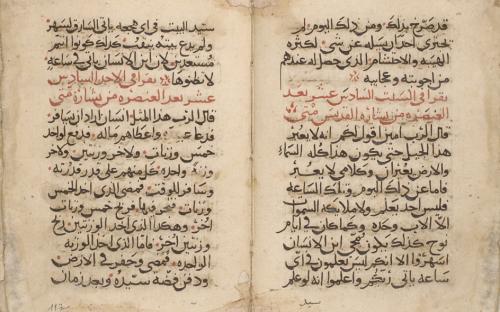 قد صرح بذلك ومن ذلك اليوم لم
يجترى احدا ان يسله عن شى لكثرة
الهيبه والاحتشام الذى حصل له عندهم
من اجوبته وعجايبه
يقرا فى السبت السادس عشر بعد
العنصره من بشارة القديس متى
قال الرب امين اقول لكم انه لا يعبر
هذا الجيل حتى يكون هذا كله السماء
والارض يعبران وكلامى لا يعبر
فاما عن ذلك اليوم وتلك الساعه
فليس احد يعلم ولا ملايكة السموات
الا الاب وحده وكما كان فى ايام
نوح كذلك يكون مجى ابن الانسان
اسهروا الا انكم ليس تعلمون فى اى
ساعه ياتى ربكم واعلموا انه لو علم
سيد
سيد البيت فى اى هجعه ياتى السارق لسهر
ولم يدع بيته ينقب كذلك كونوا انتم
مستعدين لان ابن الانسان ياتى فى ساعه
لا تظنوها يقرا فى الاحد السادس
عشر بعد العنصره من بشارة متى
قال الرب هذا المثل انسان اراد ان يسافر
فدعا عبيده واعطاهم ماله فدفع لواحد
خمس وزنات ولاخر وزنتين ولاخر
وزنه واحده كل منهم على قدر قدرته
وسافر للوقت فمضى الذى اخذ الخمس
وزنات فتجر فيها فربح خمس وزنات
اخر وهكذا الذى اخذ الوزنتين ربح
وزنتين اخر فاما الذى اخذ الوزنه
الواحده فمضى وحفر فى الارض
ودفن فضة سيده وبعد زمان